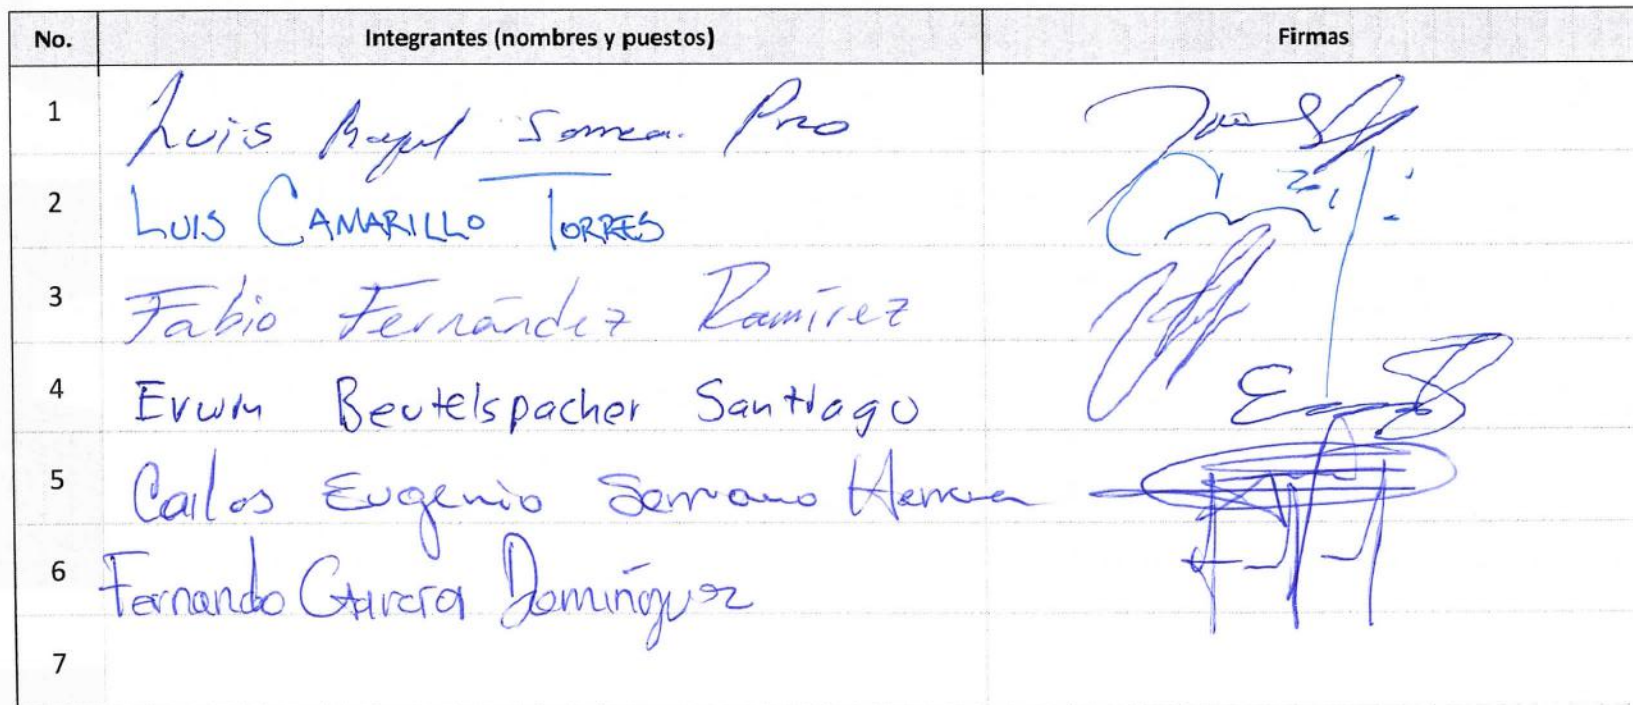 No. Integrantes (nombres y puestos) Firmas
1 Luis
2 LUIS CAMARILLO TORRES
3 Fabio Fernández Ramírez
4 Erwin Beutelspacher Santiago
5 Carlos Eugenio Serrano Herrera
6 Fernando García Domínguez
7